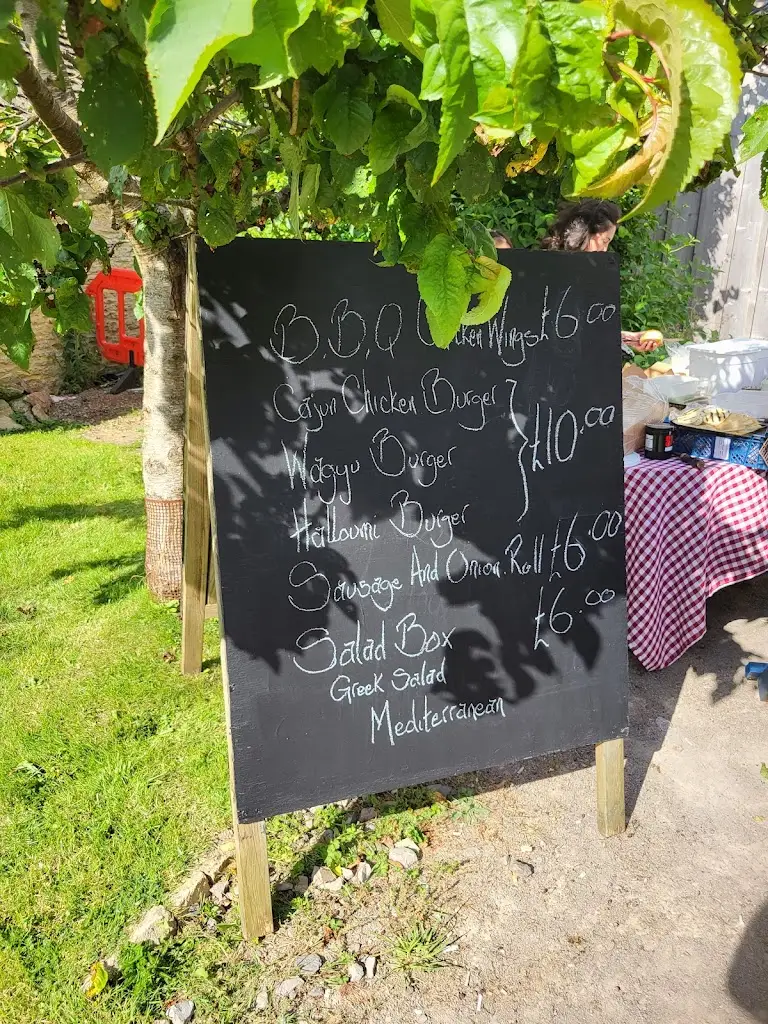 B.B.Q Chicken Wings £6.00
Cajun Chicken Burger
Wagyu Burger £10.00
Halloumi Burger
Sausage And Onion Roll £6.00
Salad Box £6.00
Greek Salad
Mediterranean